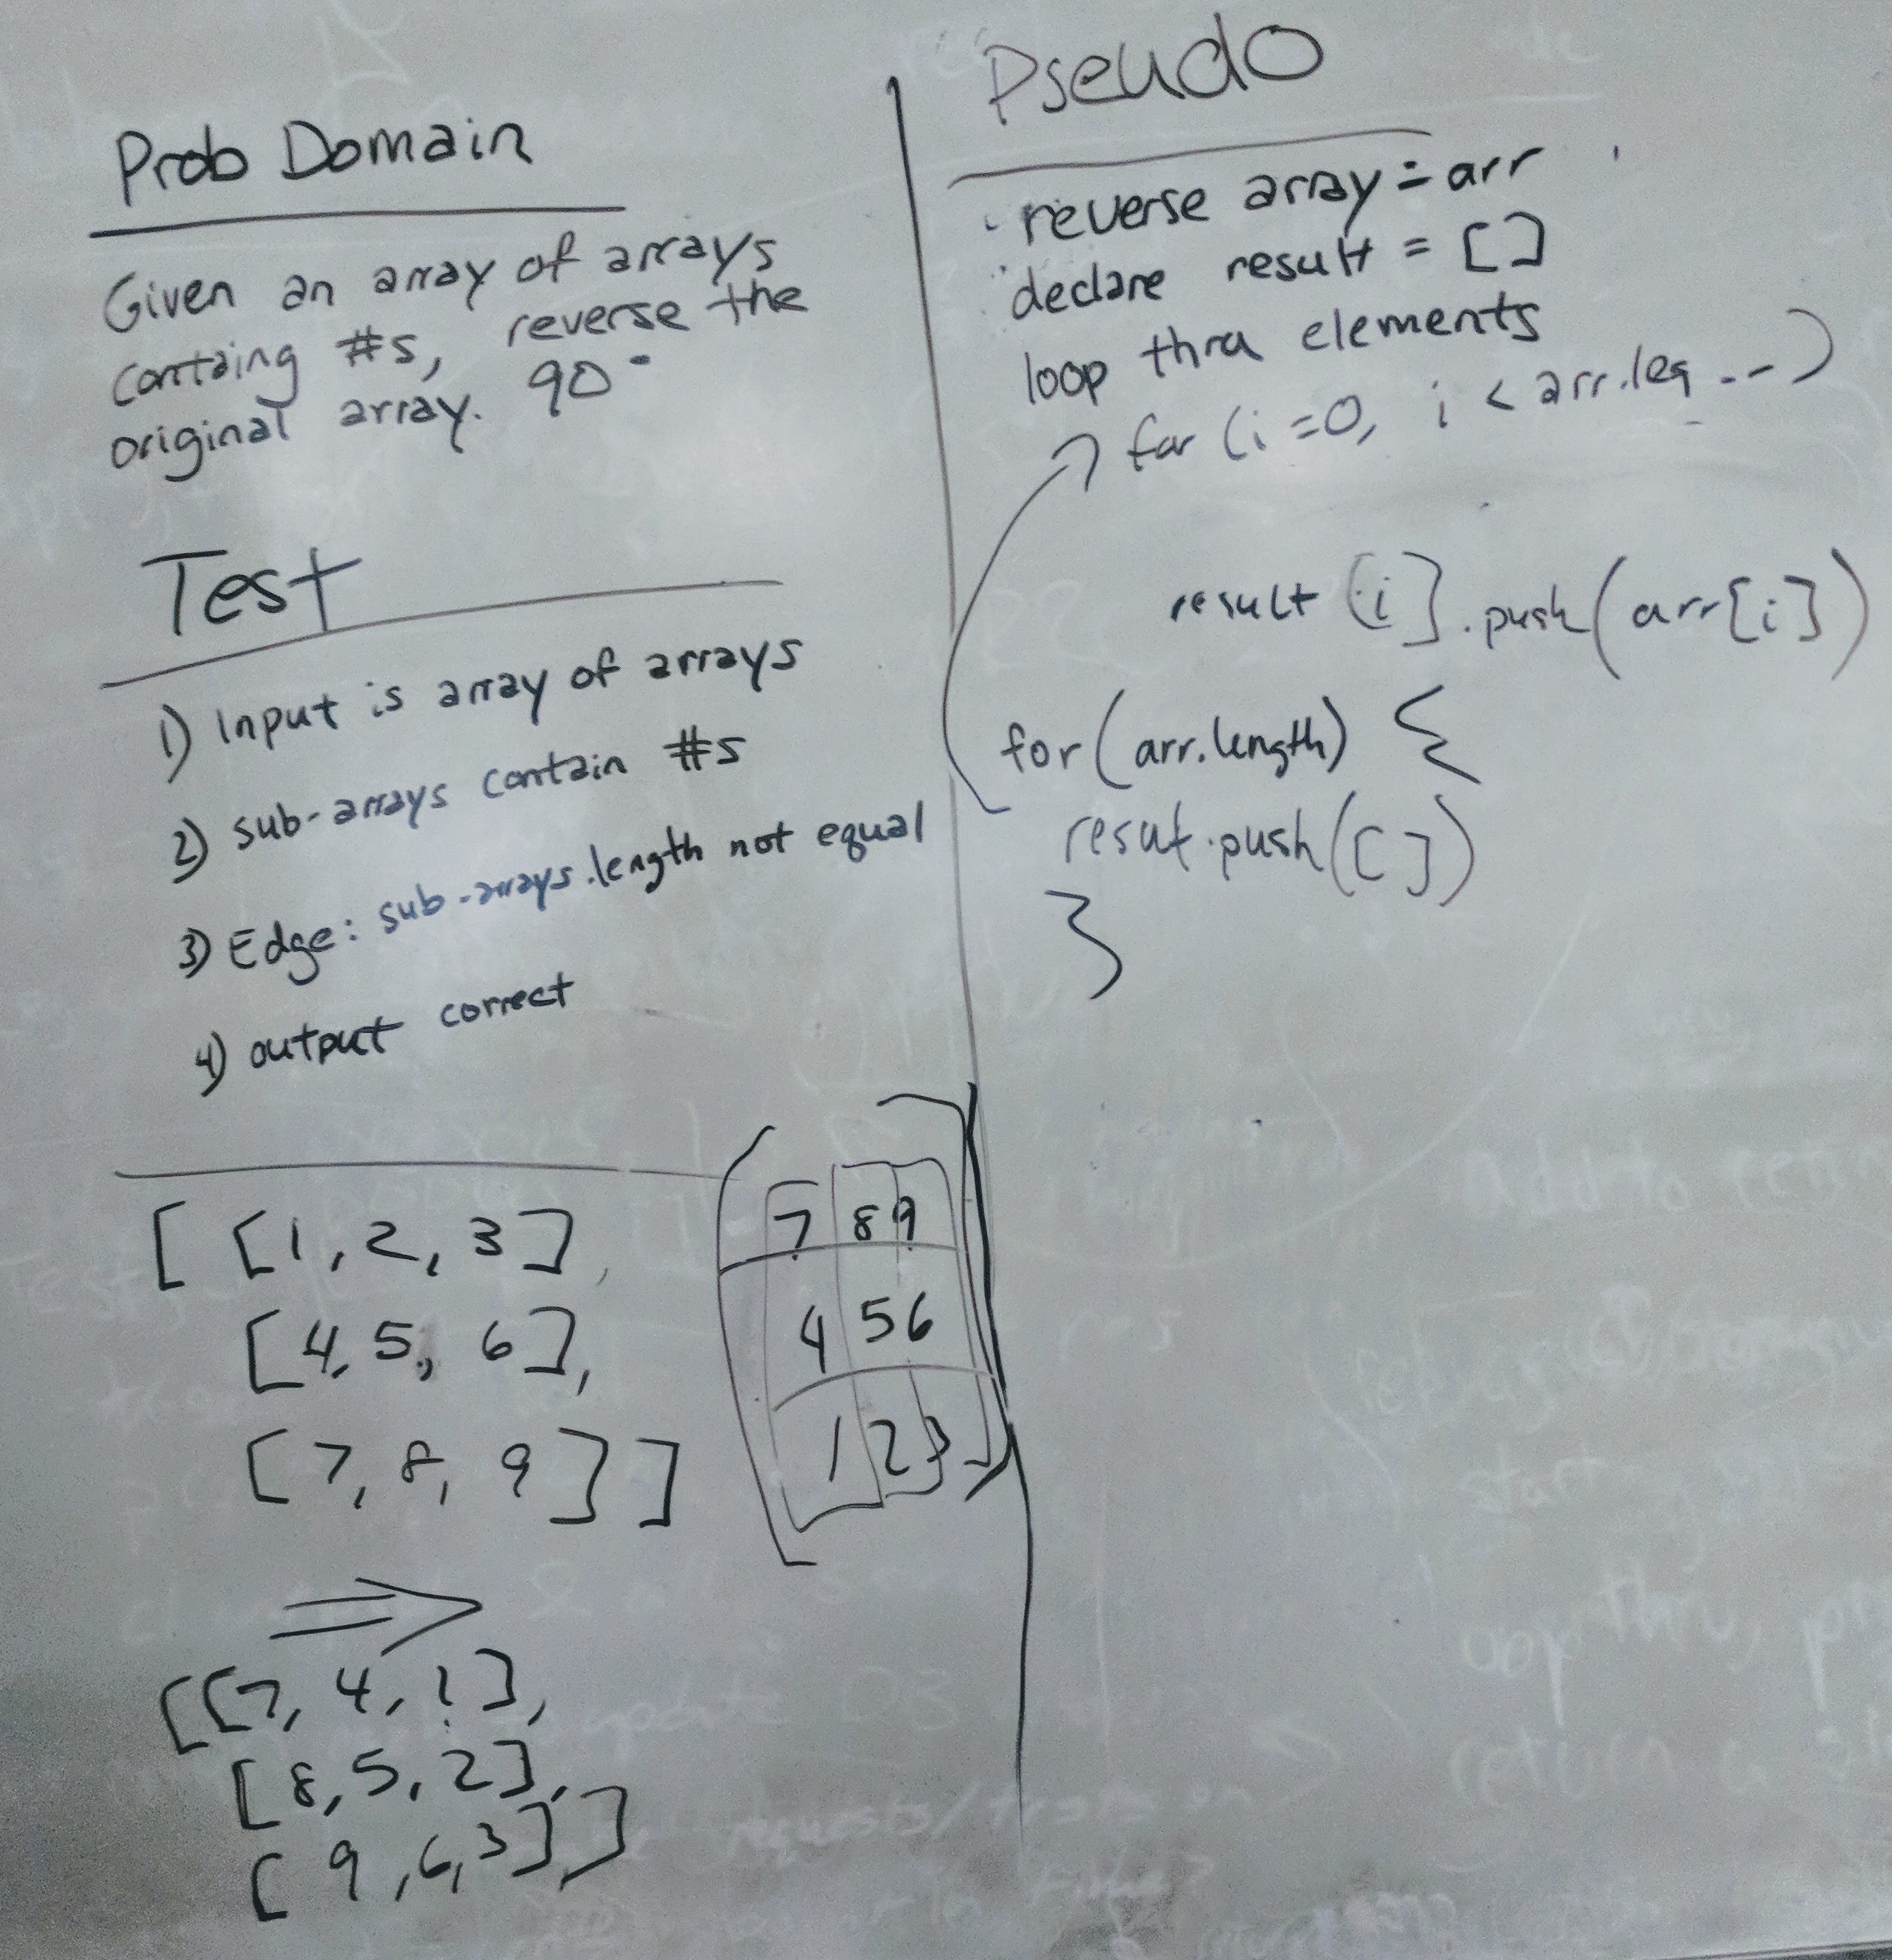 Prob Domain
Given an array of arrays
containg #s, reverse the
original array. 90°
Test
1) Input is array of arrays
2) sub-arrays contain #s
3) Edge: sub-arrays.length not equal
4) output correct
[ [1, 2, 3],
[4, 5, 6],
[7, 8, 9]]
7 8 9
4 5 6
1 2 3
[[7, 4, 1],
[8, 5, 2],
[9, 6, 3]]
Pseudo
reverse array = arr
declare result = []
loop thru elements
for (i=0, i < arr.leg ---)
result [i].push(arr[i])
for (arr.length) {
resut.push([])
}
Add to
start
update DB
return